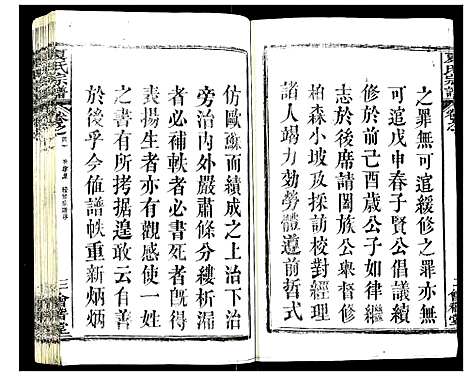 夏氏宗譜
之罪無可逭緩修之罪亦無
可逭戊申春子賢公倡議續
修於前己酉歲公子如律繼
志於後席請闔族公舉督修
柏森小坡及採訪校對經理
諸人竭力効勞體遵前哲式
三會堂
仿歐蘇而續成之上治下
旁治內外嚴肅條分縷析漏
者必補軼者必書死者旣得
表揚生者亦有觀感使一姓
之書有所考據遑敢云自善
於後乎今値譜帙重新炳炳
夏氏宗譜
卷之
三會堂